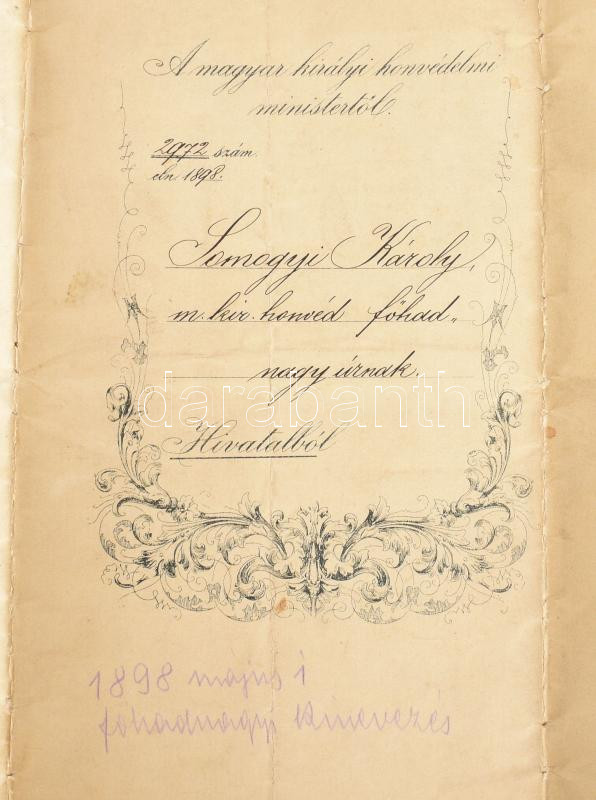 A magyar királyi honvédelmi
ministertől.
2972 szám.
eln. 1898.
Somogyi Károly,
m. kir. honvéd főhad„
nagy úrnak.
darabanth
Hivatalból
1898 május 1
főhadnagyi kinevezés